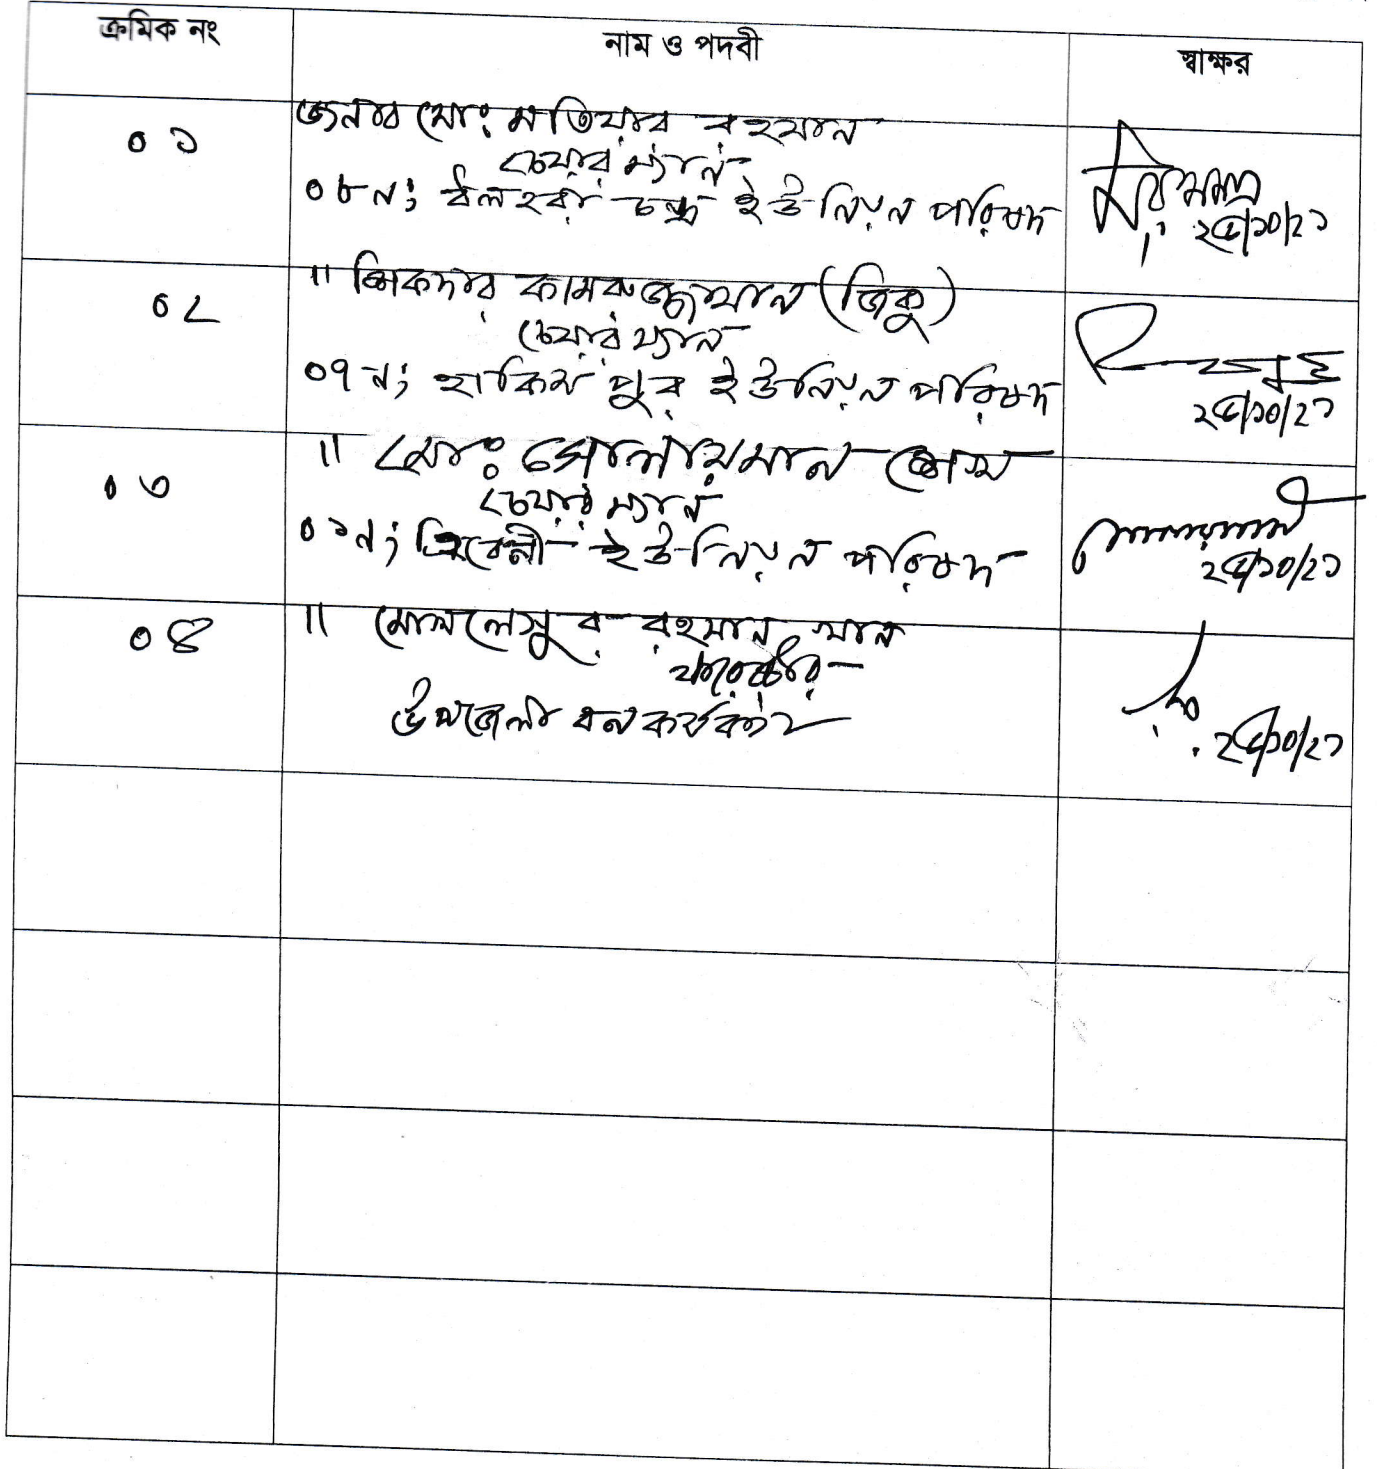 ক্রমিক নং নাম ও পদবী স্বাক্ষর
০১ জনাব মোঃ মতিয়ার রহমান
চেয়ারম্যান
০৮নং ধলহরা চন্দ্র ইউনিয়ন পরিষদ
২৫/১০/২১
০২ " শিকদার কামরুজ্জামান (জিকু)
চেয়ারম্যান
০৭নং হাকিমপুর ইউনিয়ন পরিষদ
২৫/১০/২১
০৩ " মোঃ সোলায়মান শেখ
চেয়ারম্যান
০১নং ত্রিবেনী ইউনিয়ন পরিষদ
২৫/১০/২১
০৪ " মোখলেসুর রহমান
ফরেষ্টার
উপজেলা বন কার্যালয়
২৫/১০/২১